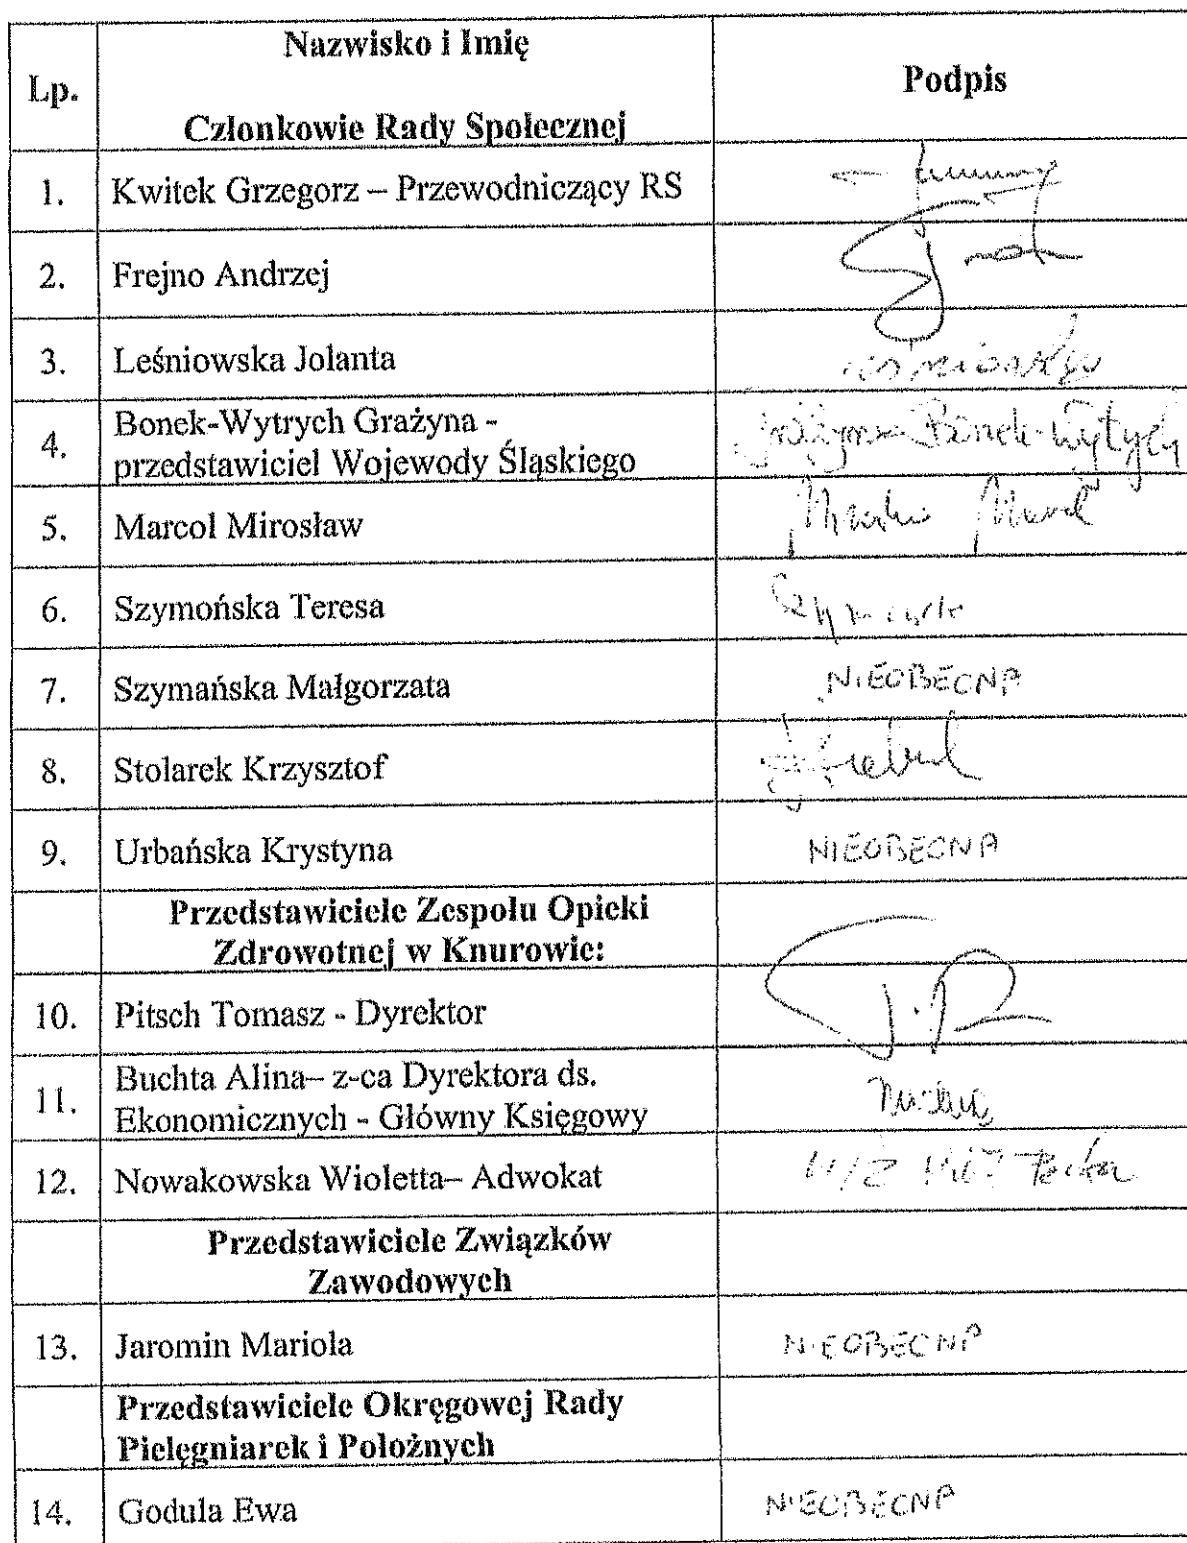 Lp.
Nazwisko i Imię
Członkowie Rady Społecznej
Podpis
1. Kwitek Grzegorz – Przewodniczący RS
2. Frejno Andrzej
3. Leśniowska Jolanta
4. Bonek-Wytrych Grażyna -
przedstawiciel Wojewody Śląskiego
Grażyna Bonek-Wytrych
5. Marcol Mirosław
6. Szymońska Teresa
7. Szymańska Małgorzata NIEOBECNA
8. Stolarek Krzysztof
9. Urbańska Krystyna NIEOBECNA
Przedstawiciele Zespołu Opieki
Zdrowotnej w Knurowie:
10. Pitsch Tomasz - Dyrektor
11. Buchta Alina– z-ca Dyrektora ds.
Ekonomicznych - Główny Księgowy
12. Nowakowska Wioletta– Adwokat W/Z
Przedstawiciele Związków
Zawodowych
13. Jaromin Mariola NIEOBECNA
Przedstawiciele Okręgowej Rady
Pielęgniarek i Położnych
14. Godula Ewa NIEOBECNA